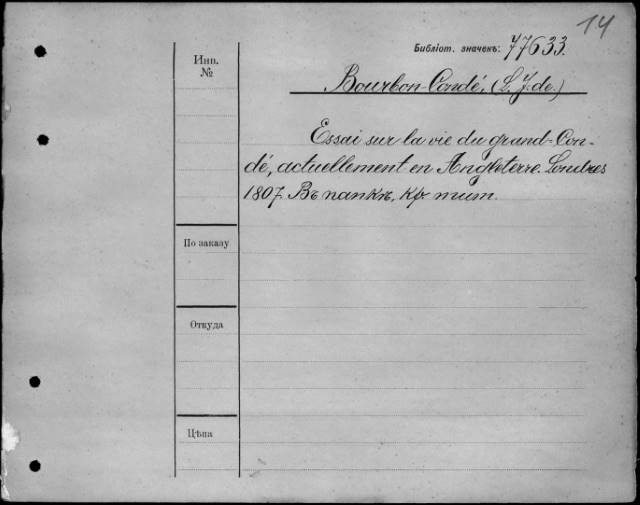 14
Библіот. значекъ: 77633.
Инв.
№
Bourbon-Condé, (L. J. de.)
Essai sur la vie du grand-Con-
dé, actuellement en Angleterre. Londres
1807. Въ папкѣ, кр. тит.
По заказу
Откуда
Цѣна